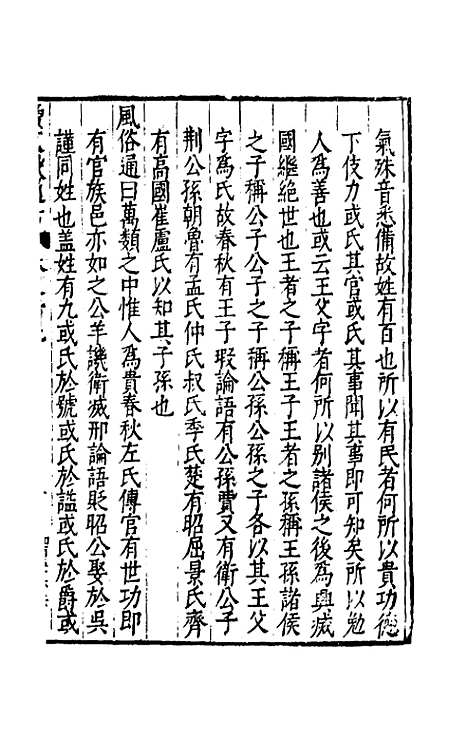 氣殊音悉備故姓有百也所以有民者何所以貴功德
下伎力或氏其官或氏其事聞其事即可知矣所以勉
人為善也或云王父字者何所以別諸侯之後為興滅
國繼絕世也王者之子稱王子王者之孫稱王孫諸侯
之子稱公子公子之子稱公孫公孫之子各以其王父
字為氏故春秋有王子瑕論語有公孫賈又有衛公子
荆公孫朝魯有孟氏仲氏叔氏季氏楚有昭屈景氏齊
有高國崔盧氏以知其子孫也
風俗通曰萬類之中惟人為貴春秋左氏傳官有世功即
有官族邑亦如之公羊譏衛滅邢論語貶昭公娶於吳
謹同姓也盖姓有九或氏於號或氏於謚或氏於爵或